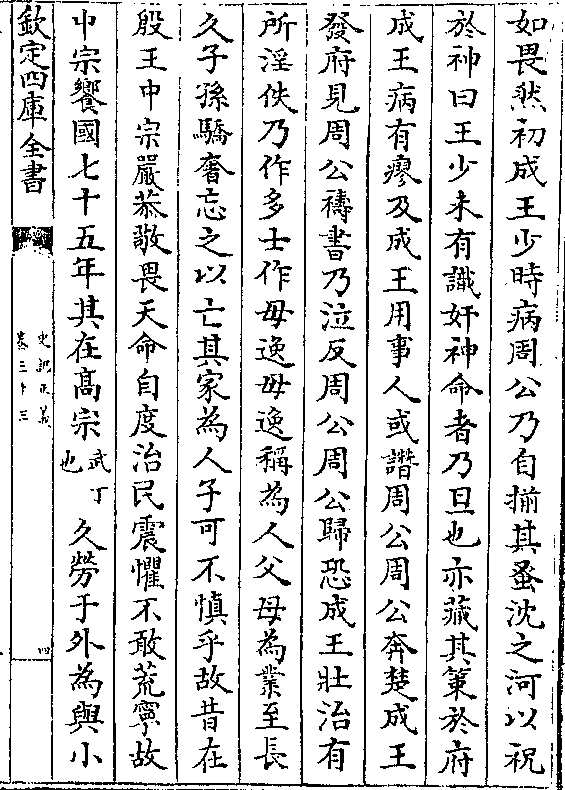 如畏然初成王少時病周公乃自揃其蚤沈之河以祝
於神曰王少未有識奸神命者乃旦也亦藏其策於府
成王病有瘳及成王用事人或譖周公周公奔楚成王
發府見周公禱書乃泣反周公周公歸恐成王壯治有
所淫佚乃作多士作毋逸毋逸稱為人父母為業至長
久子孫驕奢忘之以亡其家為人子可不慎乎故昔在
殷王中宗嚴恭敬畏天命自度治民震懼不敢荒寧故
中宗饗國七十五年其在髙宗武丁也久勞于外為與小
欽定四庫全書
史記正義
卷三十三
四